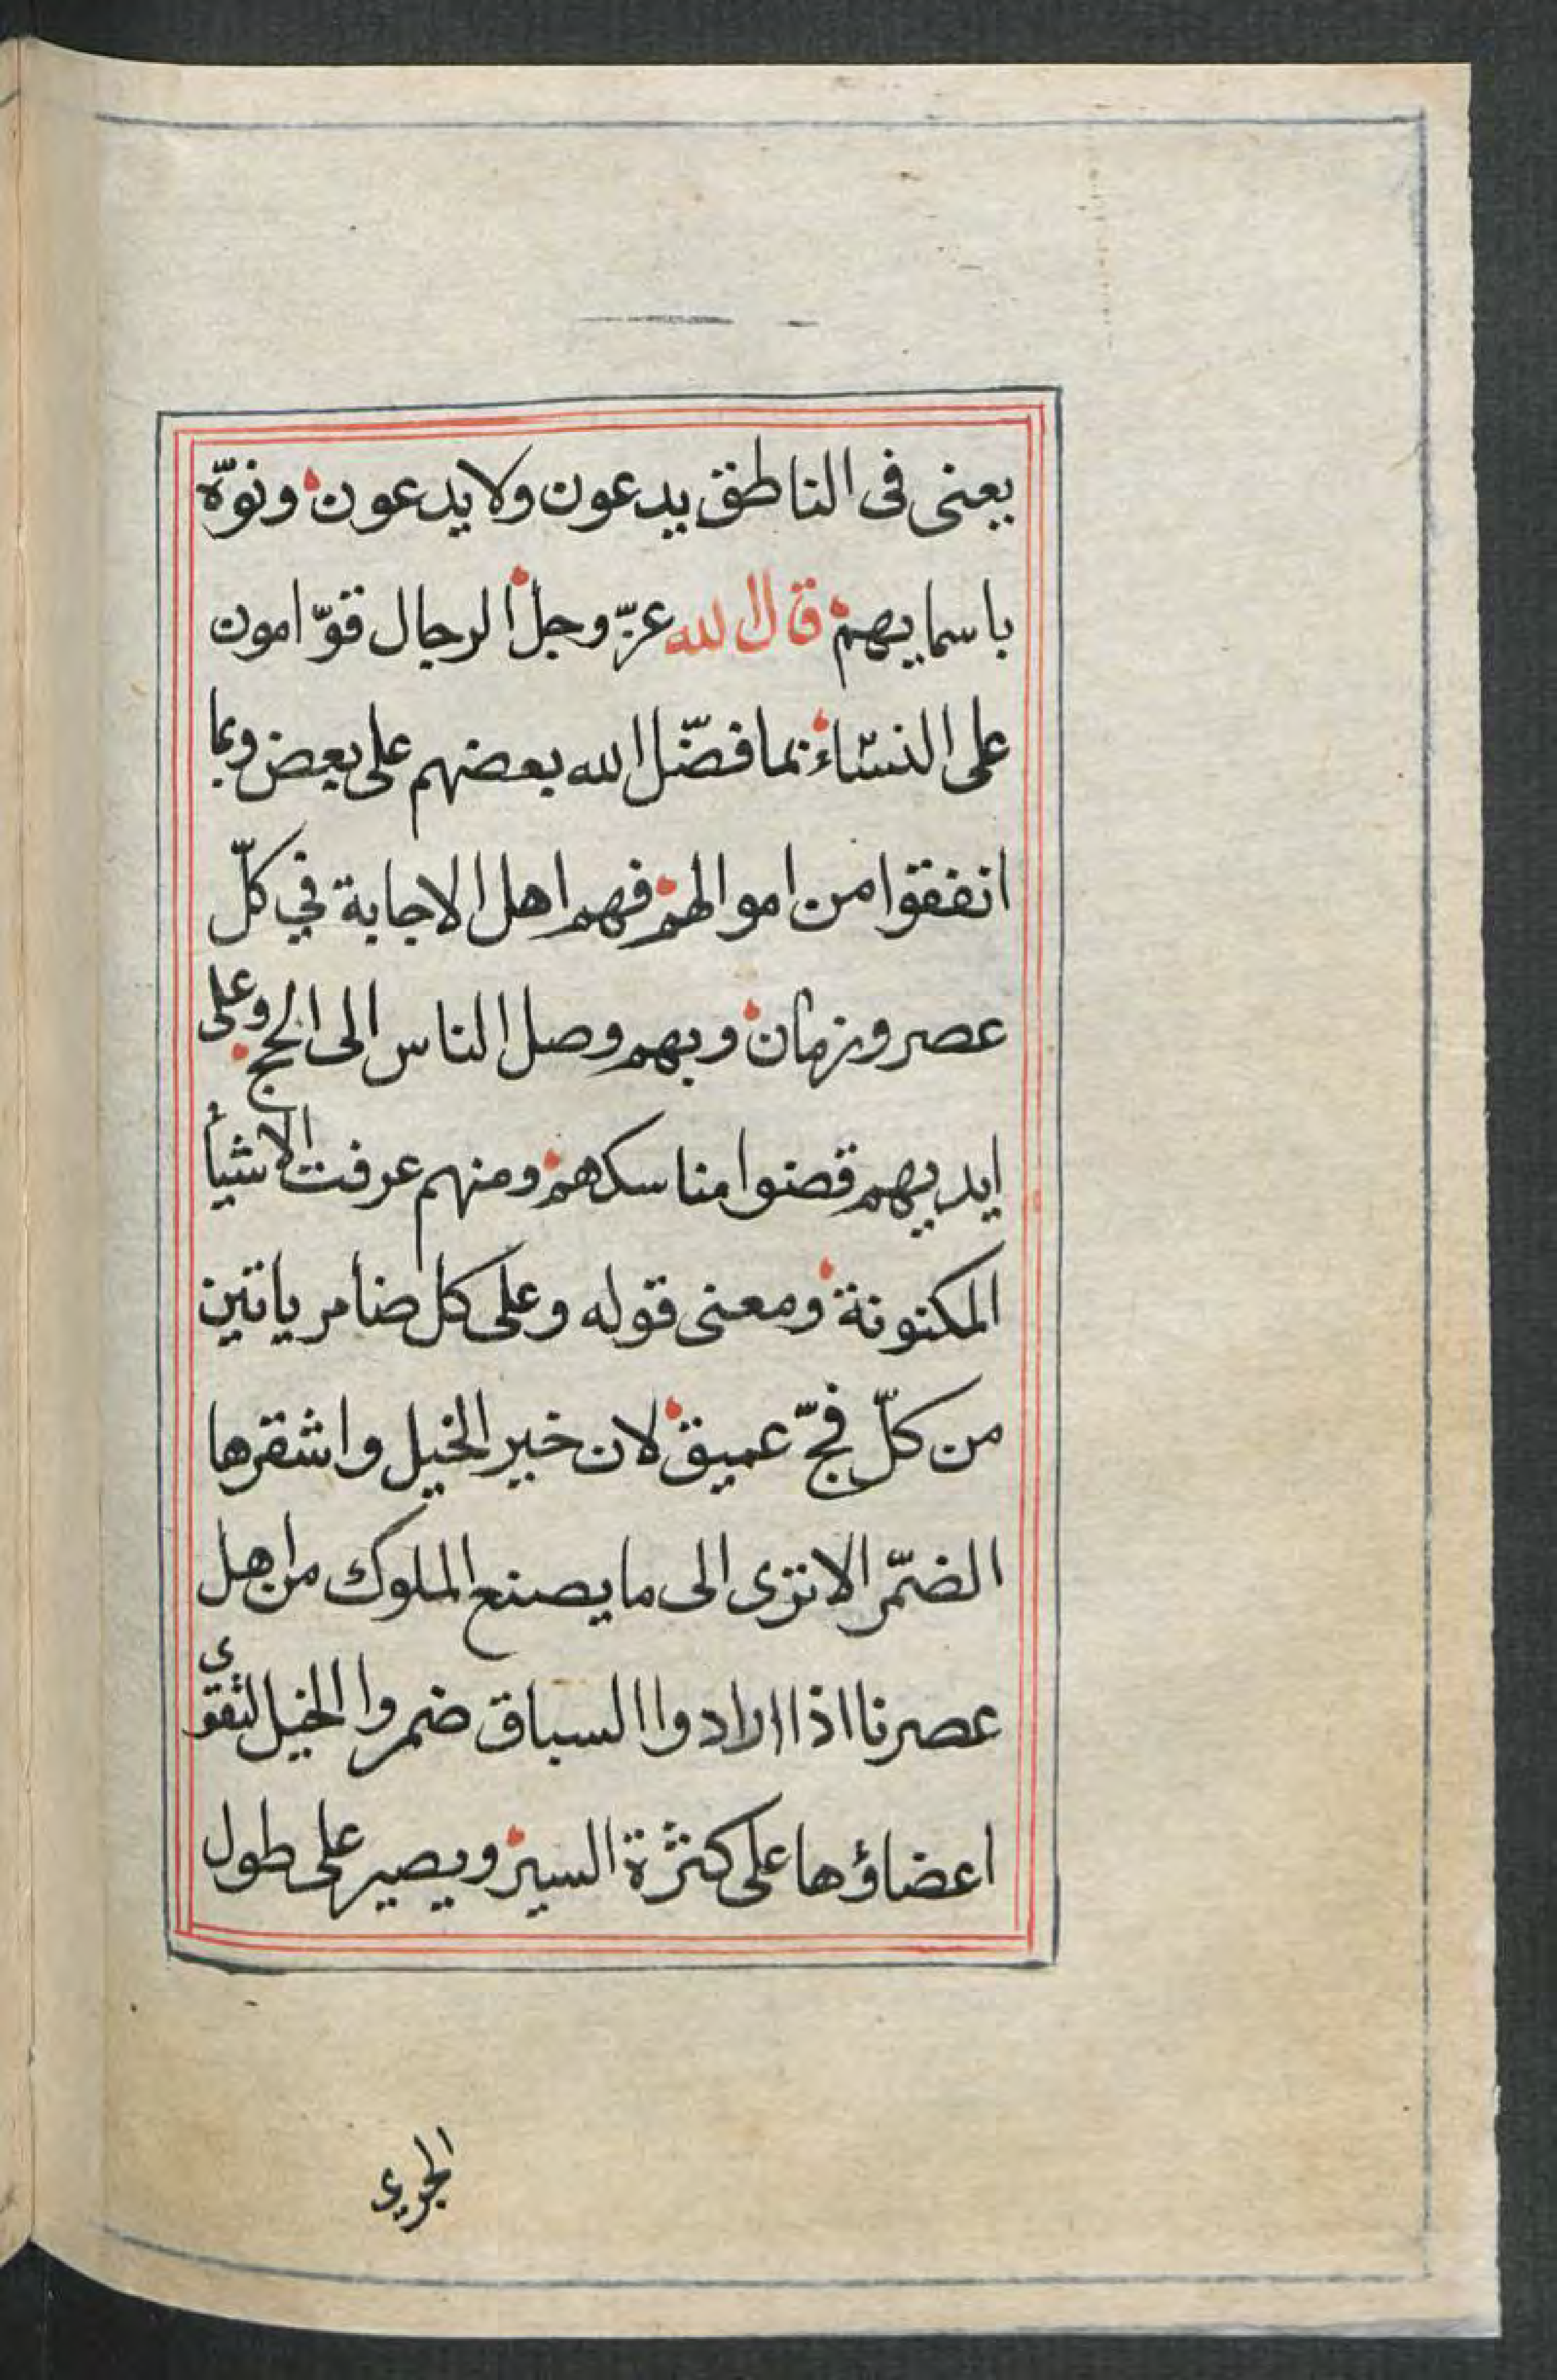 يعنى فى الناطق يدعون ولا يدعون ونوّه
باسمايهم قال الله عزّ وجل الرجال قوّامون
على النساء بما فضّل الله بعضهم على بعض وبما
انفقوا من اموالهم فهم اهل الاجابة في كلّ
عصر وزمان وبهم وصل الناس الى الحج وعلى
ايديهم قضوا مناسكهم ومنهم عرفت الاشيأ
المكنونة ومعنى قوله وعلى كل ضامر ياتين
من كلّ فجّ عميق لان خير الخيل واشقرها
الضمّر الا ترى الى ما يصنع الملوك من اهل
عصرنا اذا ارادوا السباق ضمروا الخيل لتقوى
اعضاؤها على كثرة السير ويصير على طول
الجرى